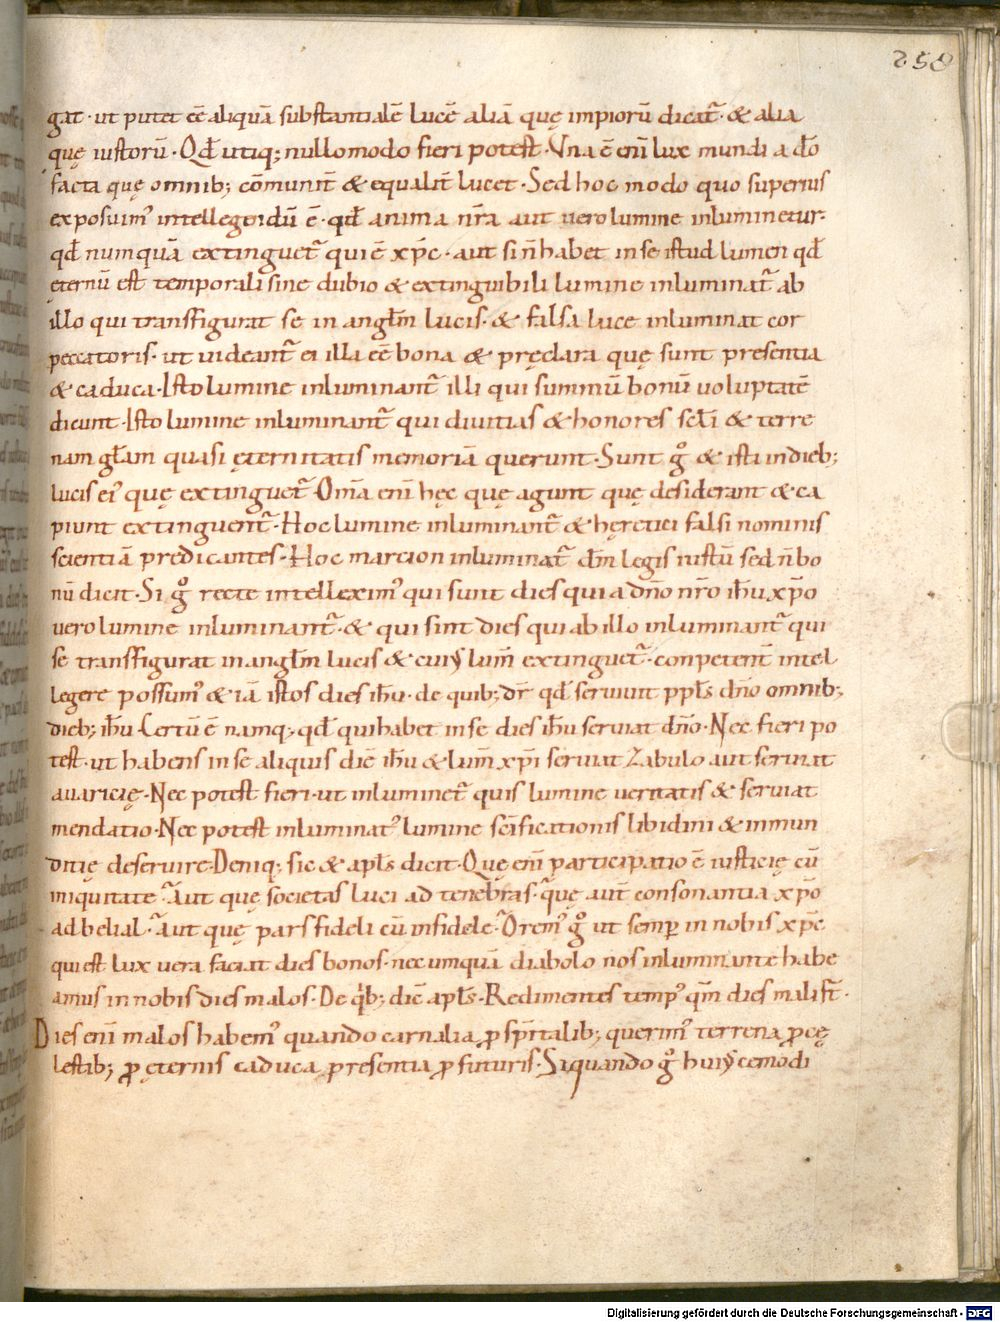 258
gat · ut putet eē aliquā substantialē lucē aliā quę impiorū dicat̄ · & alia
quę iustorū · Qđ utiq; nullomodo fieri potest · Una ē eni lux mundi a dō
facta quę omnib; cōmunit̄ & equalit̄ lucet · Sed hoc modo quo superius
exposuim' intellegendū ē · qđ anima nr̄a aut uero lumine inluminetur ·
qđ numquā extinguet̄ qui ē xp̄c · aut si n̄ habet in se istud lumen qđ
ęternū est temporali sine dubio & extinguibili lumine inluminat̄ ab
illo qui transfigurat se in anglm̄ lucis · & falsa luce inluminat cor
peccatoris · ut uideant̄ ei illa eē bona & pręclara quę sunt presentia
& caduca · Isto lumine inluminant̄ illi qui summū bonū uoluptatē
dicunt · Isto lumine inluminant̄ qui diuitias & honores scli & terre
nam glam quasi ęternitatis memoriā querunt · Sunt g° & isti in dieb;
lucis ei' quę extinguet̄ · Om̄a eni hęc quę agunt quę desiderant & ca
piunt extinguent̄ · Hoc lumine inluminant̄ & hęretici falsi nominis
scientiā predicantes · Hoc marcion inluminat̄ dm̄ legis iustū sed n̄ bo
nū dicit · Si g° recte intelleximꝰ qui sunt dies qui a dn̄o nr̄o ihu xp̄o
uero lumine inluminant̄ · & qui sint dies qui ab illo inluminant̄ qui
se transfigurat in anglm̄ lucis & cui' lum̄ extinguet̄ · conpetent̄ intel
legere possum' & iā istos dies ihu · de quib; dr̄ qđ seruiit ppls dn̄o omnib;
dieb; ihu Certū ē namq; qđ qui habet in se dies ihu seruiat dn̄o · Nec fieri po
test · ut habens in se aliquis diē ihu & lum̄ xp̄i seruiat Zabulo aut seruiat
auaricię · Nec potest fieri · ut inluminet̄ quis lumine ueritatis & seruiat
mendatio · Nec potest inluminat' lumine scificationis libidini & inmun
ditię deseruire · Deniq; sic & apls dicit · Quę eni participatio ē iusticię cū
iniquitate · Aut quę societas luci ad tenebras · quę aut̄ consonantia xp̄o
ad belial · Aut quę pars fideli cū infidele · Orem' g° ut semp in nobis xp̄c
qui est lux uera faciat dies bonos · nec umquā diabolo nos inluminante habe
amus in nobis dies malos · De qb; dic̄ apls · Redimentes temp' qm̄ dies mali st̄ ·
Dies eni malos habem' quando carnalia ꝓ sp̄italib; querim' terrena ꝓ cę
lestib; ꝓ ęternis caduca presentia ꝓ futuris · Siquando g° hui'cemodi
Digitalisierung gefördert durch die Deutsche Forschungsgemeinschaft - DFG